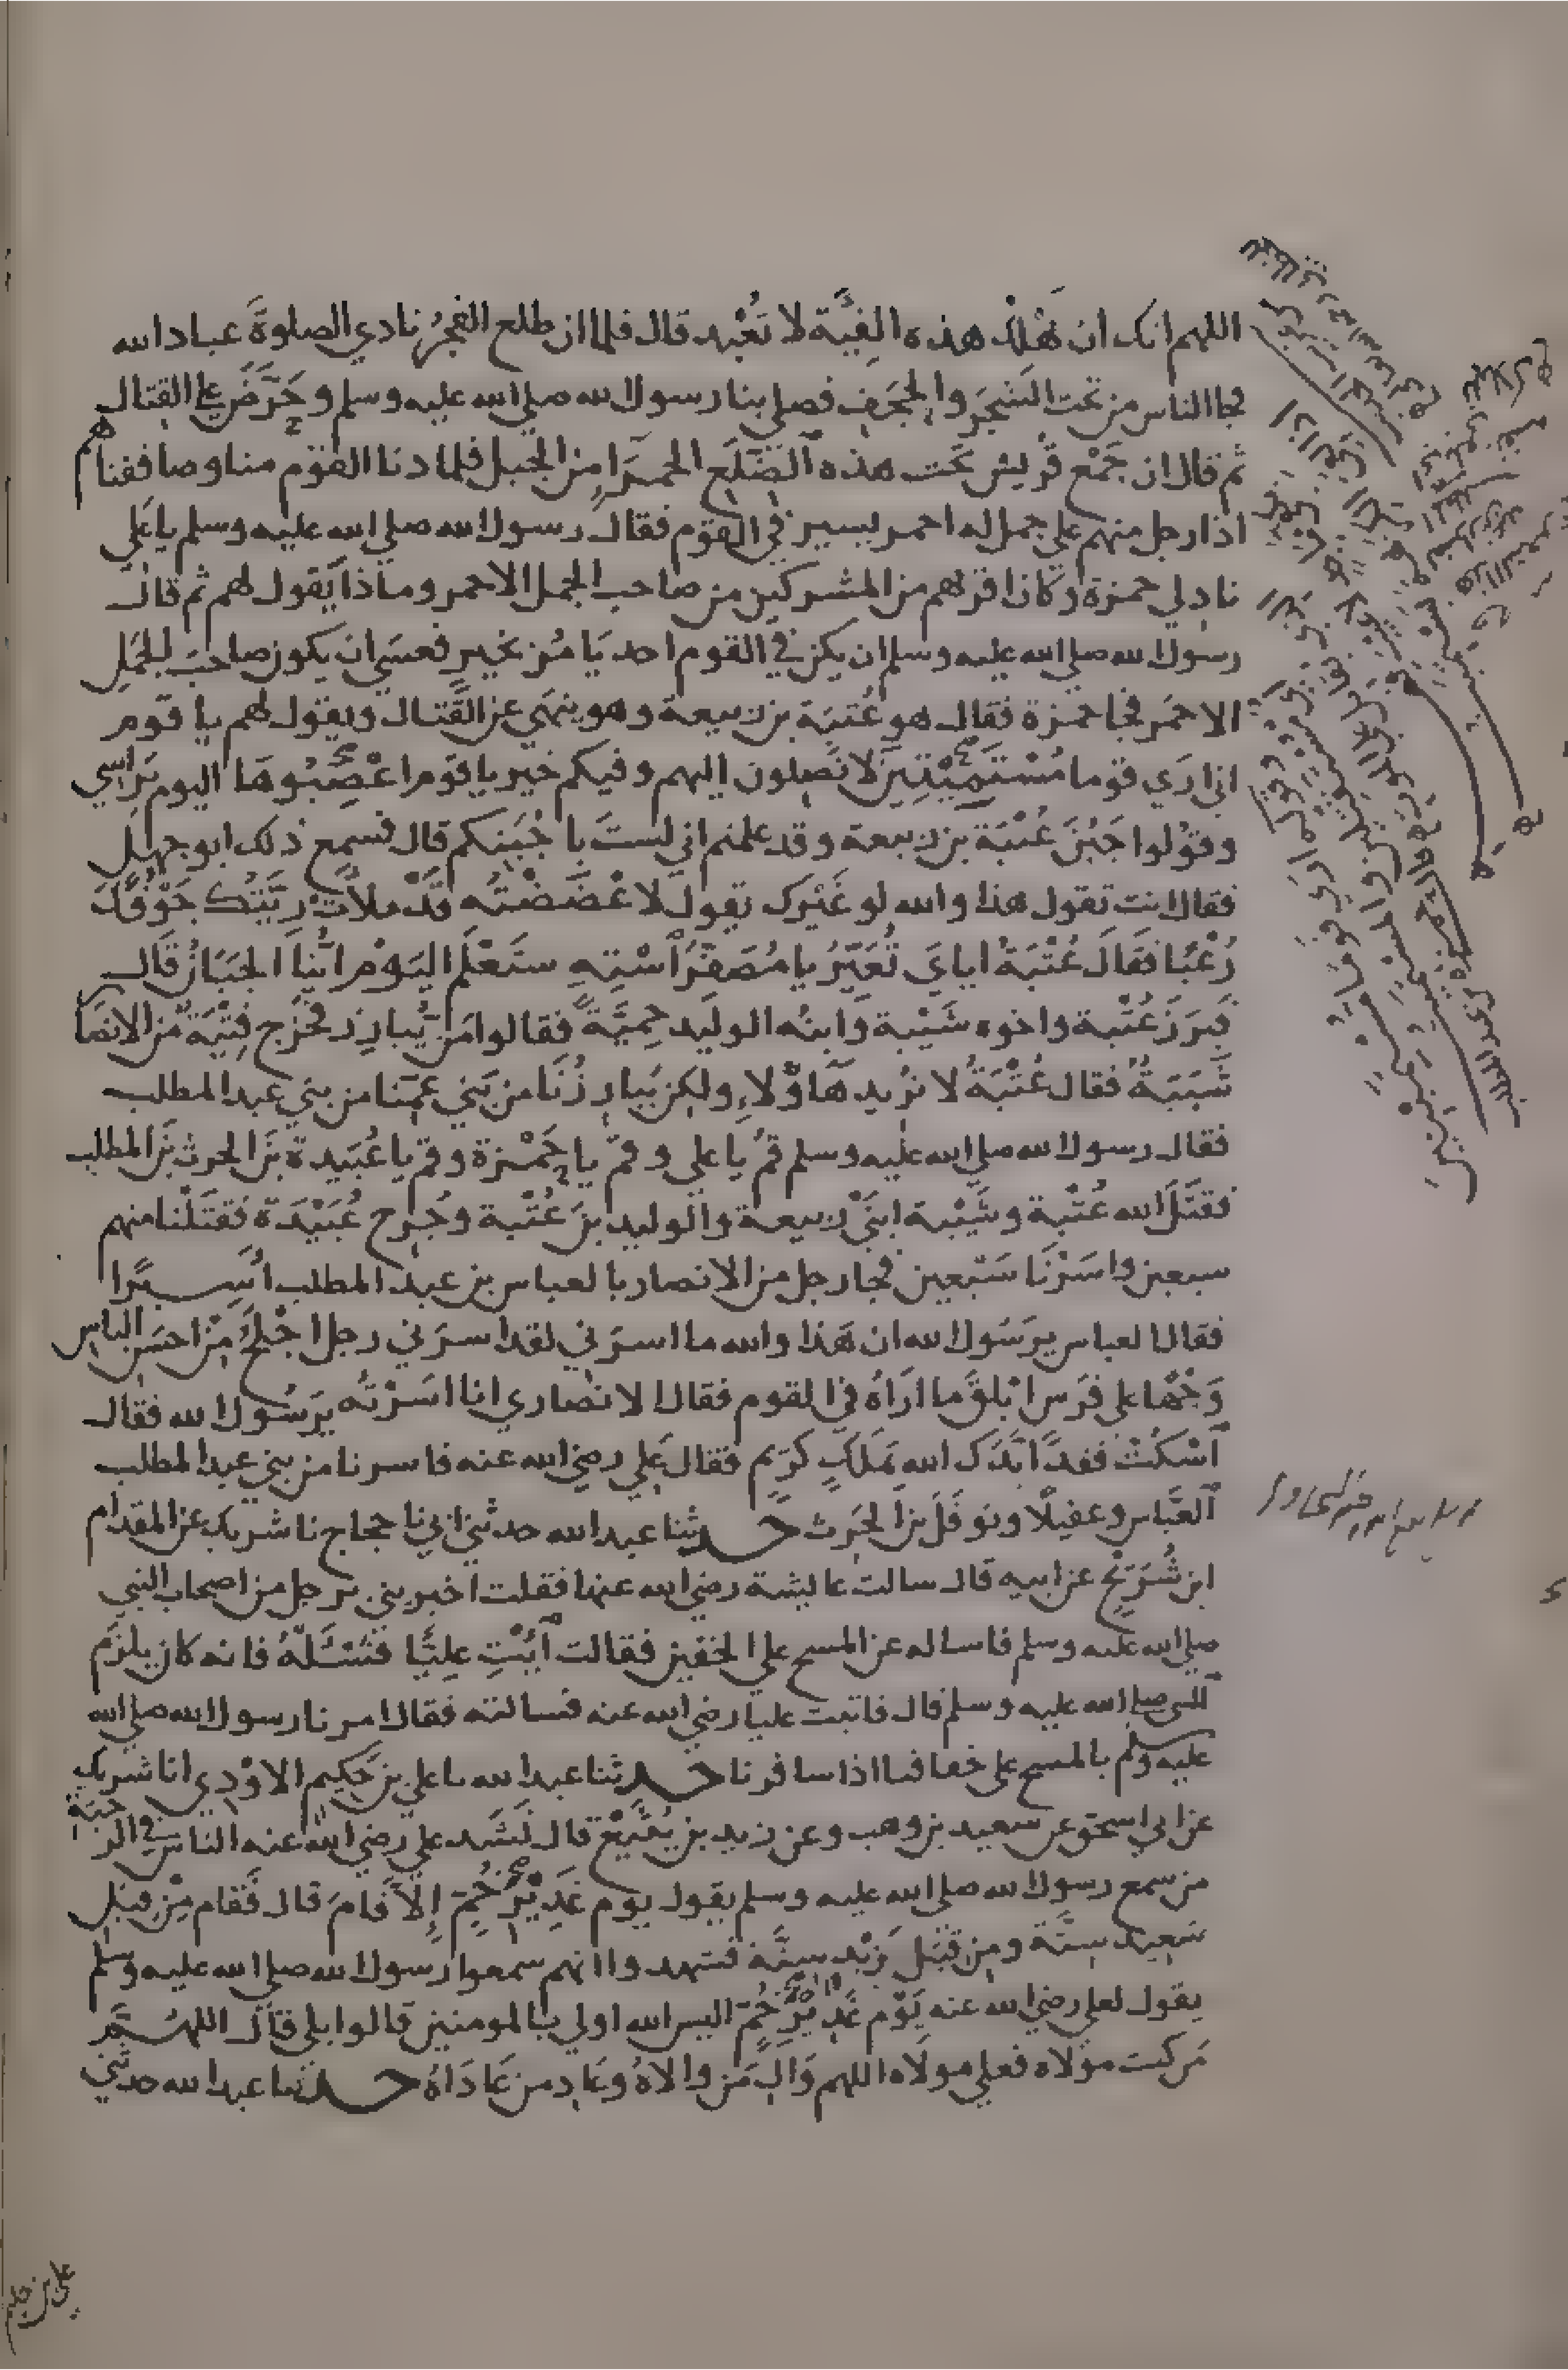 اللهم انك ان تهلك هذه الفئة لا تعبد قال فلما ان طلع الفجر نادي الصلوة عباد الله
فجا الناس من تحت الشجر والحجف فصلي بنا رسول الله صلي الله عليه وسلم وحرض علي القتال
ثم قال ان جمع قريش تحت هذه الضلع الحمرا من الجبل فلما دنا القوم منا وصاففناهم
اذا رجل منهم علي جمل له احمر يسير في القوم فقال رسول الله صلي الله عليه وسلم يا علي
ناد لي حمزة وكان اقربهم من المشركين من صاحب الجمل الاحمر وماذا يقول لهم ثم قال
رسول الله صلي الله عليه وسلم ان يكن في القوم احد يامر بخير فعسي ان يكون صاحب الجمل
الاحمر فجا حمزة فقال هو عتبة بن ربيعة وهو ينهي عن القتال ويقول لهم يا قوم
اني اري قوما مستميتين لا تصلون اليهم وفيكم خير يا قوم اعصبوها اليوم براسي
وقولوا جبن عتبة بن ربيعة وقد علمتم اني لست باجبنكم قال فسمع ذلك ابو جهل
فقال انت تقول هذا والله لو غيرك يقول لاعضضته قد ملات ريتك جوفك
رعبا فقال عتبة اياي تعير يا مصفر استه ستعلم اليوم اينا الجبان قال
فبرز عتبة واخوه شيبة وابنه الوليد حمية فقالوا من يبارز فخرج فتية من الانصار
شببة فقال عتبة لا نريد هاولاء ولكن يبارزنا من بني عمنا من بني عبد المطلب
فقال رسول الله صلي الله عليه وسلم قم يا علي وقم يا حمزة وقم يا عبيدة بن الحرث بن المطلب
فقتل الله عتبة وشيبة ابني ربيعة والوليد بن عتبة وجرح عبيدة فقتلنا منهم
سبعين واسرنا سبعين فجا رجل من الانصار بالعباس بن عبد المطلب اسيرا
فقال العباس يرسول الله ان هذا والله ما اسرني لقد اسرني رجل اجلح من احسن الناس
وجها علي فرس ابلق ما اراه في القوم فقال الانصاري انا اسرته يرسول الله فقال
اسكت فقد ايدك الله بملك كريم فقال علي رضي الله عنه فاسرنا من بني عبد المطلب
العباس وعقيلا ونوفل بن الحرث حدثنا عبد الله حدثني ابي نا حجاج نا شريك عن المقدام
ابن شريح عن ابيه قال سالت عايشة رضي الله عنها فقلت اخبريني برجل من اصحاب النبي
صلي الله عليه وسلم فاساله عن المسح علي الخفين فقالت ائت عليا فسئله فانه كان يلزم
النبي صلي الله عليه وسلم قال فاتيت عليا رضي الله عنه فسالته فقال امرنا رسول الله صلي الله
عليه وسلم بالمسح علي خفافنا اذا سافرنا حدثنا عبد الله نا علي بن حكيم الاودي انا شريك
عن ابي اسحق عن سعيد بن وهب وعن زيد بن يثيع قال نشد علي رضي الله عنه الناس في الرحبة
من سمع رسول الله صلي الله عليه وسلم يقول يوم غدير خم الا قام قال فقام من قبل
سعيد ستة ومن قبل زيد ستة فشهدوا انهم سمعوا رسول الله صلي الله عليه وسلم
يقول لعلي رضي الله عنه يوم غدير خم اليس الله اولي بالمومنين قالوا بلي قال اللهم
من كنت مولاه فعلي مولاه اللهم وال من والاه وعاد من عاداه حدثنا عبد الله حدثني
علي بن حكيم